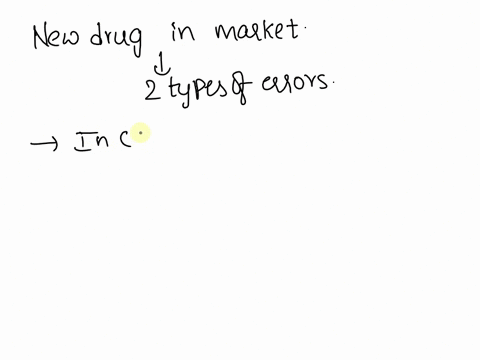 New drug in market.
2 types of errors.
→ In c